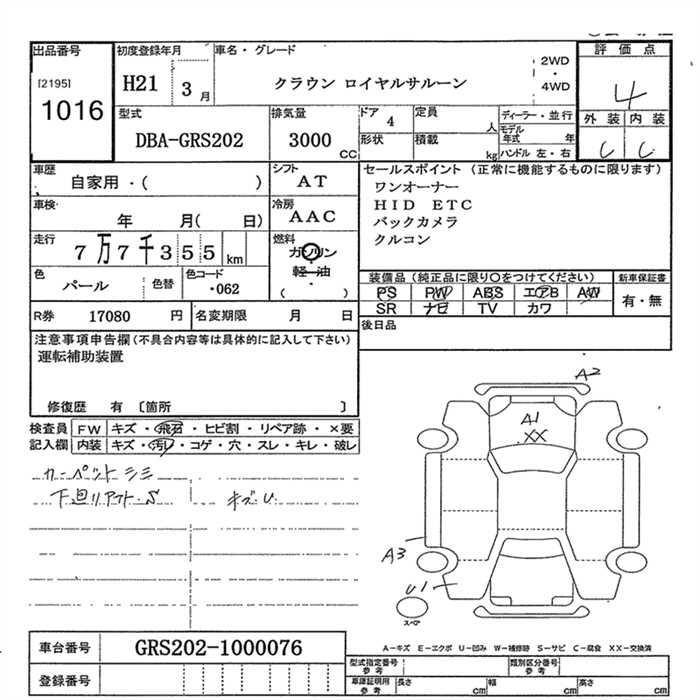 出品番号 初度登録年月 車名・グレード 評価点
[2195] 1016 H21 3月 クラウン ロイヤルサルーン 2WD・4WD 4
外装 内装
C C
型式 排気量 ドア 4 定員 人 ディーラー・並行
DBA-GRS202 3000 CC 形状 積載 kg モデル年式 年 ハンドル 左・右
車歴 シフト セールスポイント (正常に機能するものに限ります)
自家用・( ) AT ワンオーナー
車検 冷房 HID ETC
年 月( 日) AAC バックカメラ
走行 燃料 クルコン
7万7千355km ガソリン
軽・油
( )
色 色替 色コード
パール ・062
装備品 (純正品に限り○をつけてください) 新車保証書
PS PW ABS エアB AW 有・無
SR ナビ TV カワ
R券 17080 円 名変期限 月 日 後日品
注意事項申告欄(不具合内容等は具体的に記入して下さい)
運転補助装置
修復歴 有 〔箇所 〕
検査員 FW キズ・飛石・ヒビ割・リペア跡・×要
記入欄 内装 キズ・汚れ・コゲ・穴・スレ・キレ・破レ
カーペットシミ
下廻リアフト.S キズU
A2
A1
XX
A3
U1
スペア
A-キズ E-エクボ U-凹み W-補修跡 S-サビ C-腐食 XX-交換済
車台番号 GRS202-1000076
型式指定番号 参考 類別区分番号 参考
登録番号 車庫証明用 参考 長さ cm 幅 cm 高さ cm